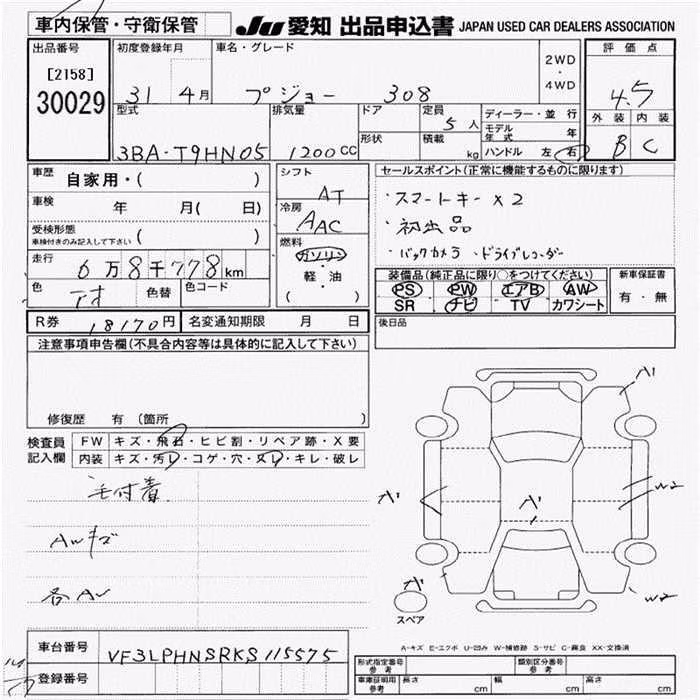 車内保管・守衛保管
JU 愛知 出品申込書 JAPAN USED CAR DEALERS ASSOCIATION
出品番号 初度登録年月 車名・グレード 評価点
[2158]
30029
31 4月 プジョー 308 2WD・4WD 4.5
型式 排気量 ドア 定員 5人 ディーラー・並行 外装 内装
モデル年式 年
3BA-T9HN05 1200CC 形状 積載 kg ハンドル 左・右 B C
車歴 自家用・( )
シフト AT
セールスポイント(正常に機能するものに限ります)
・スマートキー x2
・初出品
・バックカメラ ・ドライブレコーダー
車検 年 月( 日)
冷房 AAC
受検形態
車検付きのみ記入して下さい ( )
燃料 ガソリン・軽・油 ( )
走行 6万8千778km
装備品(純正品に限り○をつけてください) 新車保証書
PS PW エアB AW 有・無
SR ナビ TV カワシート
色 色替 色コード
R券 18170円 名変通知期限 月 日
後日品
注意事項申告欄(不具合内容等は具体的に記入して下さい)
修復歴 有 (箇所 )
検査員記入欄
FW キズ・飛石・ヒビ割・リペア跡・X要
内装 キズ・汚レ・コゲ・穴・スレ・キレ・破レ
毛付着
AWキズ
各AU
A1
A1
W2
A1
A1
W2
スペア
A-キズ E-エクボ U-凹み W-補修跡 S-サビ C-腐食 XX-交換済
車台番号 VF3LPHNSRKS115575
登録番号
形式指定番号 参考 類別区分番号 参考
車庫証明用 参考 長さ cm 幅 cm 高さ cm